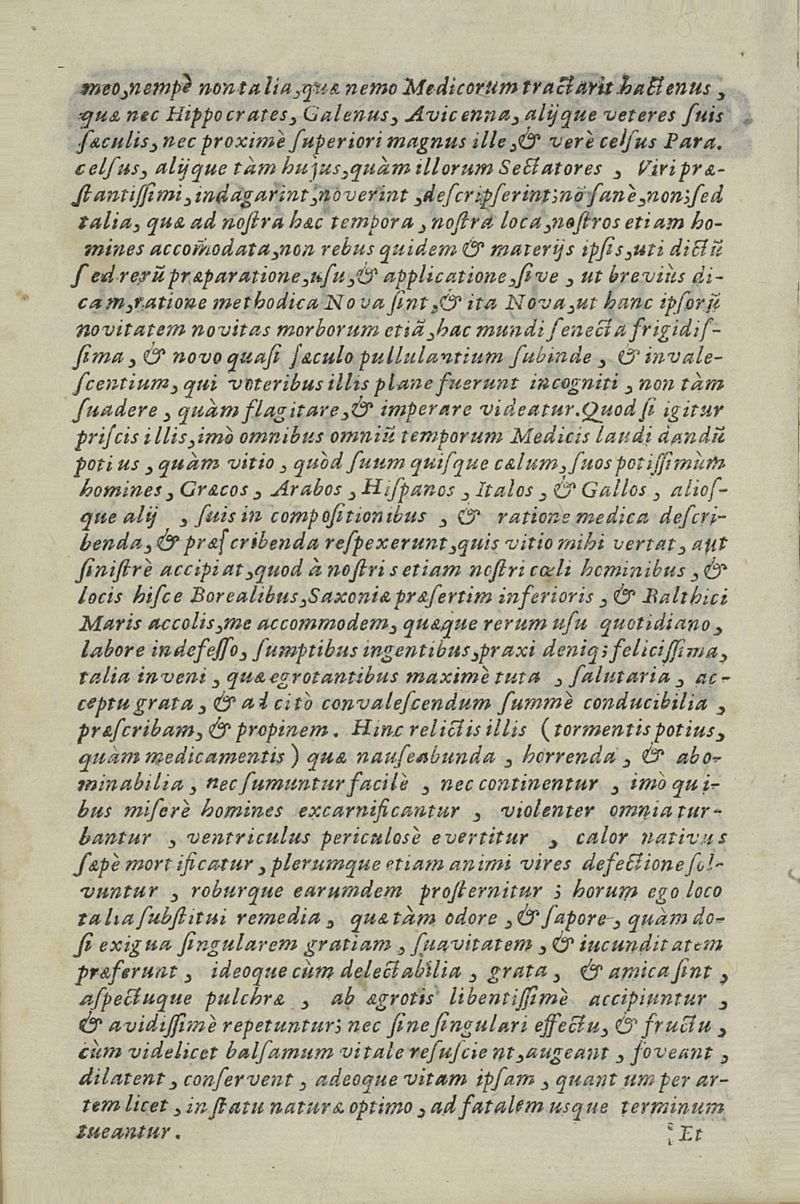 meo, nempè non talia, quæ nemo Medicorum tractarit hactenus,
quæ nec Hippocrates, Galenus, Avicenna, alijque veteres ſuis
ſæculis, nec proximè ſuperiori magnus ille, & verè celſus Para.
celſus, alijque tàm hujus, quàm illorum Sectatores, Viri præ-
ſtantiſſimi, indagarint, noverint, deſcripſerint; nō ſanè, non; ſed
talia, quæ ad noſtra hæc tempora, noſtra loca, noſtros etiam ho-
mines accom̄odata, non rebus quidem & materijs ipſis, uti dictū
ſed rerū præparatione, uſu, & applicatione, ſive, ut breviùs di-
cam, ratione methodica Nova ſint, & ita Nova, ut hanc ipſorū
novitatem novitas morborum etiā, hac mundi ſenecta frigidiſ-
ſima, & novo quaſi ſæculo pullulantium ſubinde, & invale-
ſcentium, qui veteribus illis plane fuerunt incogniti, non tàm
ſuadere, quàm flagitare, & imperare videatur. Quod ſi igitur
priſcis illis, imò omnibus omniū temporum Medicis laudi dandū
potius, quàm vitio, quòd ſuum quiſque cælum, ſuos potiſſimùm
homines, Græcos, Arabos, Hiſpanos, Italos, & Gallos, alioſ-
que alij, ſuis in compoſitionibus, & ratione medica deſcri-
benda, & præſcribenda reſpexerunt, quis vitio mihi vertat, aut
ſiniſtrè accipiat, quod à noſtris etiam noſtri cœli hominibus, &
locis hiſce Borealibus, Saxoniæ præſertim inferioris, & Balthici
Maris accolis, me accommodem, quæque rerum uſu quotidiano,
labore indefeſſo, ſumptibus ingentibus, praxi deniq; feliciſſima,
talia inveni, quæ egrotantibus maximè tuta, ſalutaria, ac-
ceptu grata, & ad citò convaleſcendum ſummè conducibilia,
præſcribam, & propinem. Hinc relictis illis (tormentis potius,
quàm medicamentis) quæ nauſeabunda, horrenda, & abo-
minabilia, nec ſumuntur facilè, nec continentur, imò qui-
bus miſerè homines excarnificantur, violenter omnia tur-
bantur, ventriculus periculosè evertitur, calor nativus
ſæpè mortificatur, plerumque etiam animi vires defectione ſol-
vuntur, roburque earumdem proſternitur; horum ego loco
talia ſubſtitui remedia, quæ tàm odore, & ſapore, quàm do-
ſi exigua ſingularem gratiam, ſuavitatem, & iucunditatem
præferunt, ideoque cùm delectabilia, grata, & amica ſint,
aſpectuque pulchræ, ab ægrotis libentiſſimè accipiuntur,
& avidiſſimè repetuntur; nec ſine ſingulari effectu, & fructu,
cùm videlicet balſamum vitale reſuſcient, augeant, foveant,
dilatent, conſervent, adeoque vitam ipſam, quantum per ar-
tem licet, in ſtatu naturæ optimo, ad fatalem usque terminum
tueantur.
Et